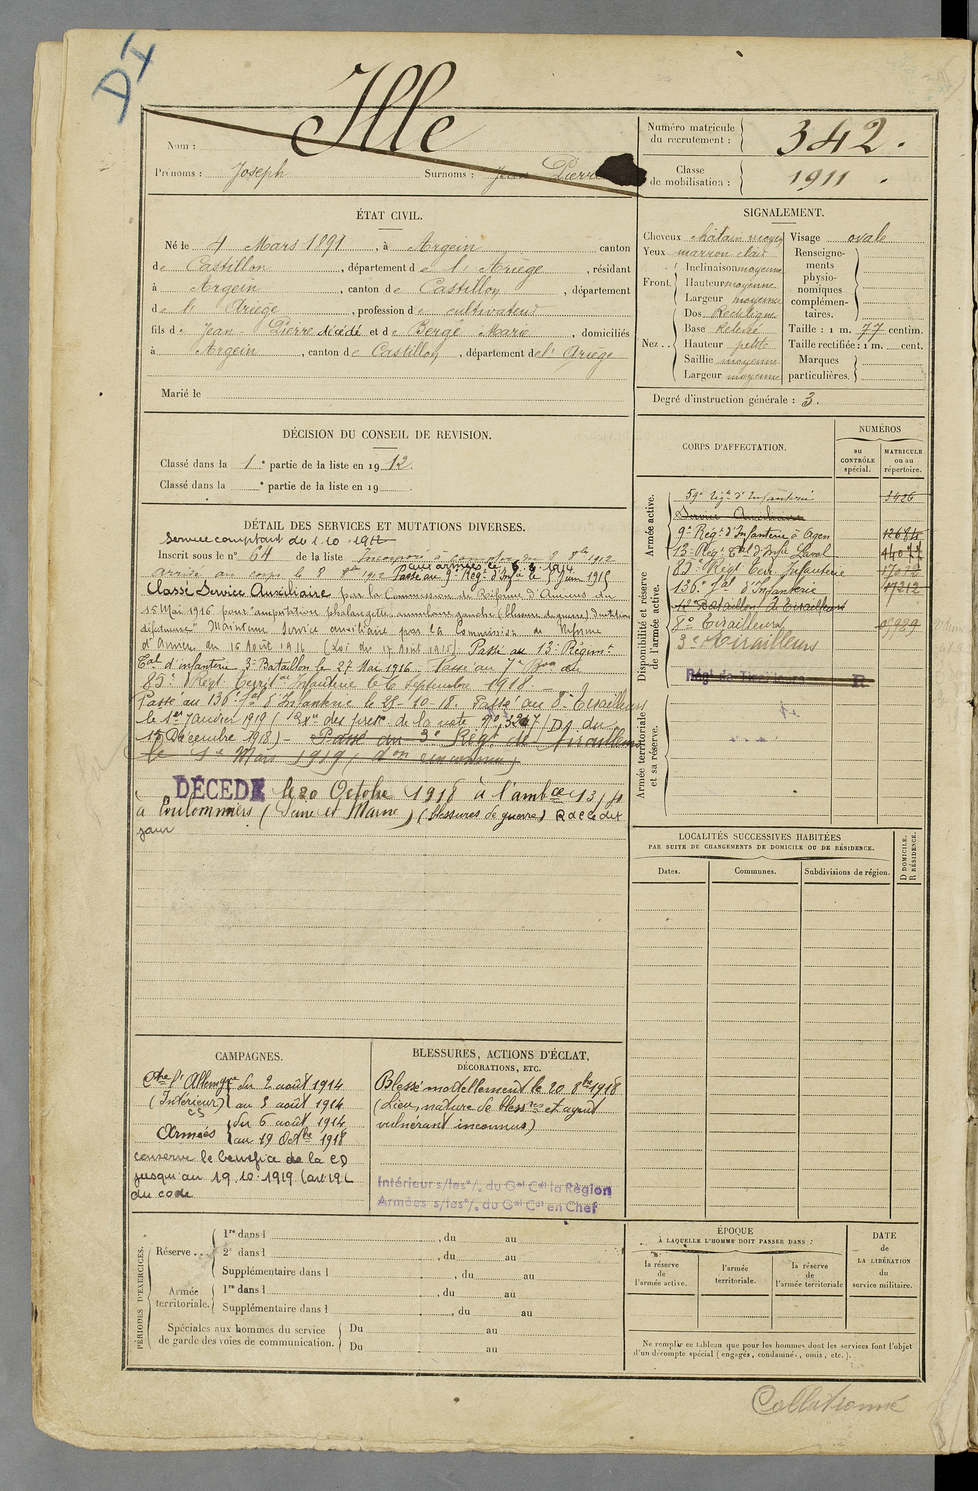 DI
Ille
Nom :
Prénoms : Joseph Surnoms : Jean Pierre
Numéro matricule du recrutement : 342.
Classe de mobilisation : 1911.
ÉTAT CIVIL.
Né le 4 Mars 1891, à Argein canton
de Castillon, département de l'Ariège, résidant
à Argein, canton de Castillon, département
de l'Ariège, profession de cultivateur
fils de Jean Pierre décédé et de Bergé Marie, domiciliés
à Argein, canton de Castillon, département de l'Ariège
Marié le
SIGNALEMENT.
Cheveux châtain moyen
Yeux marron clair
Front. Inclinaison moyenne
Hauteur moyenne
Largeur moyenne
Nez. Dos Rectiligne
Base Relevé
Hauteur petite
Saillie moyenne
Largeur moyenne
Visage ovale
Renseignements physionomiques complémentaires.
Taille : 1 m. 77 centim.
Taille rectifiée : 1 m. cent.
Marques particulières.
Degré d'instruction générale : 3.
DÉCISION DU CONSEIL DE REVISION.
Classé dans la 1e partie de la liste en 1912.
Classé dans la e partie de la liste en 19
DÉTAIL DES SERVICES ET MUTATIONS DIVERSES.
Service comptant du 1.10.1912
Inscrit sous le n° 64 de la liste Incorporé à compter du 8 8bre 1912
aux armées le 6 8 1914
arrivé au corps le 8 8bre 1912 Passé au 9e Régt d'Infie le 5 Juin 1915
Classé Service Auxiliaire par la Commission de Réforme d'Amiens du
15 Mai 1916 pour "amputation phalangette, annulaire gauche (blessure de guerre)
défectueuse" Maintenu Service auxiliaire par la Commission de Réforme
d'Amiens du 16 Août 1916 (Loi du 17 Août 1915). Passé au 13e Régiment
Eal d'infanterie 3e Bataillon le 27 Mai 1916. Passé au 7e Bon du
83e Régt Territal Infanterie le 6 Septembre 1918
Passé au 136e Jal d'Infanterie le 25-10-18. Passé au 8e Tirailleurs
le 1er Janvier 1919 (DM du
15 Décembre 1918) - Passé au 3e Régt de Tirailleurs
le 1er Mars 1919, don inconnue)
DÉCÉDÉ le 20 Octobre 1918 à l'ambce 13/
à Coulommiers (Seine et Marne) (blessures de guerre) R d c le dit
jour
CORPS D'AFFECTATION.
NUMÉROS
au CONTRÔLE spécial.
MATRICULE ou au répertoire.
Armée active.
59e Régt d'Infanterie 3426
Service Auxiliaire
Disponibilité et réserve de l'armée active.
9e Régt d'Infanterie à Agen 12684
13e Régt Eal d'Infie Laval 14077
83e Régt Terr Infanterie
136e Jal d'Infanterie 17212
Bataillon de Tirailleurs
8e Tirailleurs
3e Tirailleurs
Régt de Tirailleurs R
Armée territoriale et sa réserve.
LOCALITÉS SUCCESSIVES HABITÉES
PAR SUITE DE CHANGEMENTS DE DOMICILE OU DE RÉSIDENCE.
Dates. Communes. Subdivisions de région.
D DOMICILE. R RÉSIDENCE.
CAMPAGNES.
Ctre l'Allemgne du 2 août 1914
(Intérieur) CS au 5 août 1914
Armées du 6 août 1914
au 19 Octbre 1918
conserve le bénéfice de la CD
jusqu'au 19.10.1919 (art 19 L
du code
BLESSURES, ACTIONS D'ÉCLAT,
DÉCORATIONS, ETC.
Blessé mortellement le 20 8bre 1918
(Lieu, nature de blessres et agent
vulnérant inconnus)
Intérieur s/les °/. du Gal Cdt la Région
Armées s/les °/. du Gal Cdt en Chef
PÉRIODES D'EXERCICES.
Réserve...
1re dans l , du au
2e dans l , du au
Supplémentaire dans l , du au
Armée territoriale.
1re dans l , du au
Supplémentaire dans l , du au
Spéciales aux hommes du service de garde des voies de communication.
Du au
Du au
ÉPOQUE
À LAQUELLE L'HOMME DOIT PASSER DANS :
la réserve de l'armée active.
l'armée territoriale.
la réserve de l'armée territoriale
DATE de LA LIBÉRATION du service militaire.
Ne remplir ce tableau que pour les hommes dont les services font l'objet
d'un décompte spécial (engagés, condamnés, omis, etc.).
Collationné